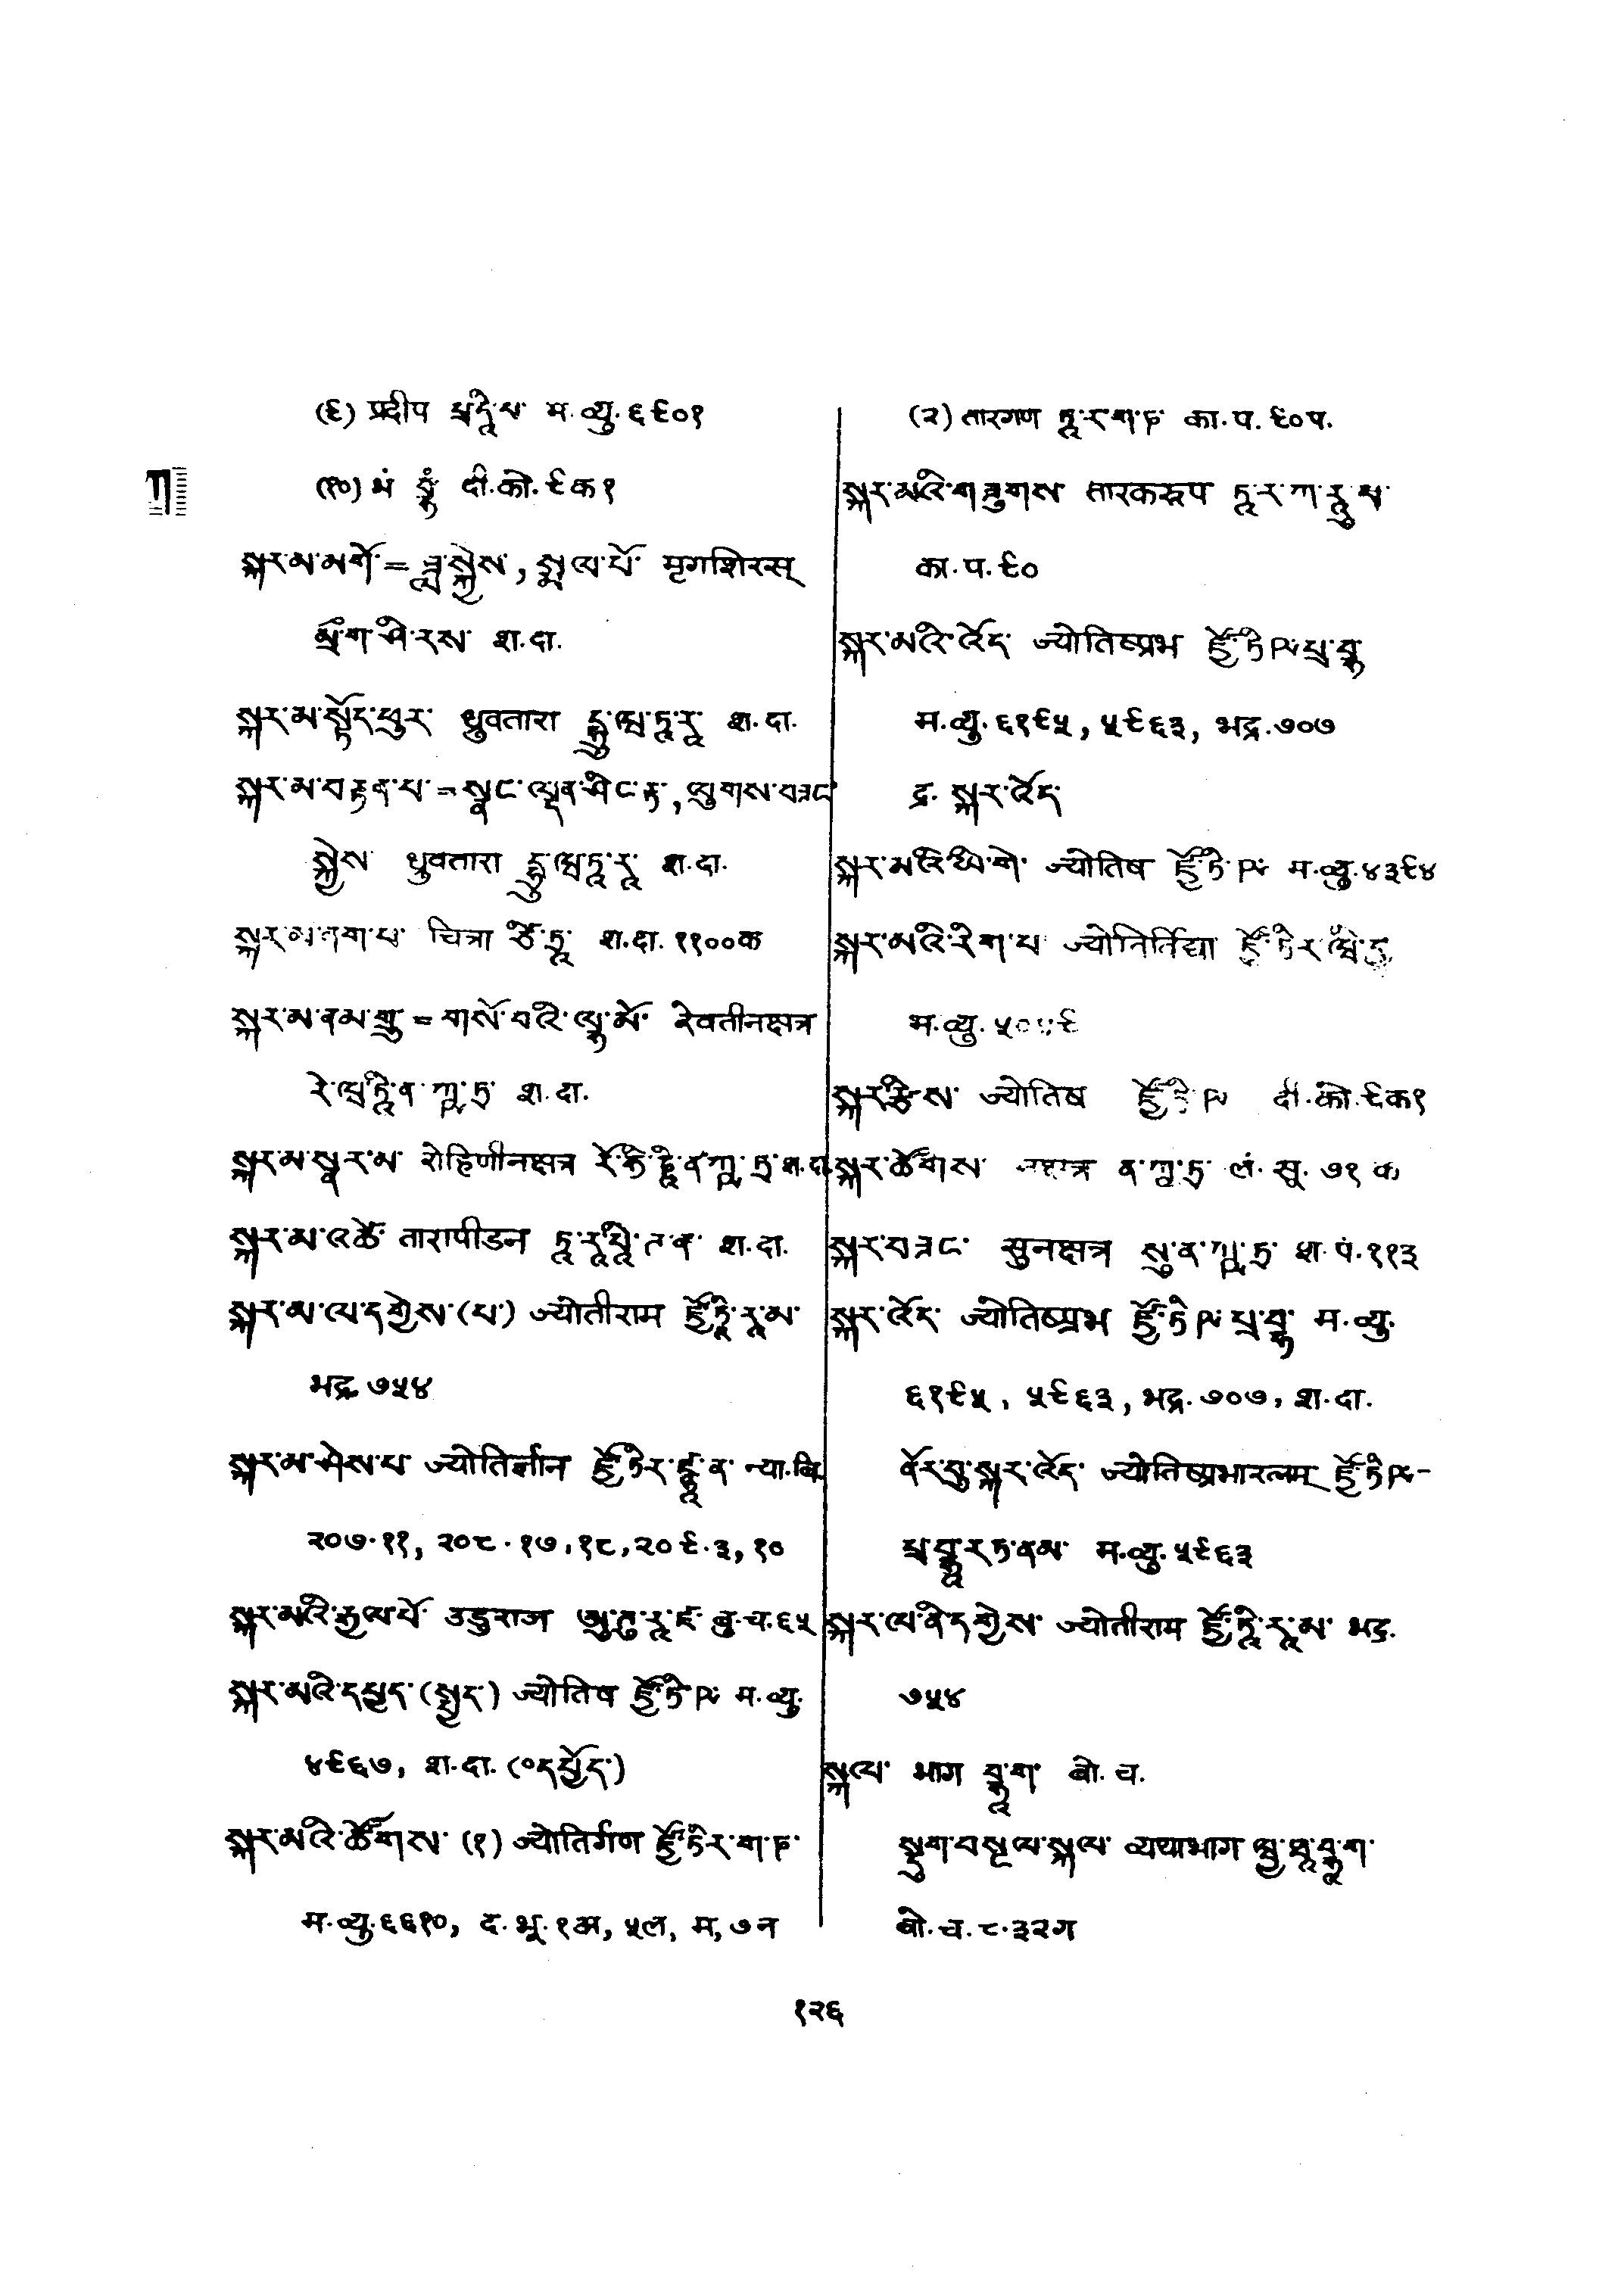 (९) प्रदीप པྲ་དཱི་པ་ म.व्यु.६९०१
(१०) भं བྷཾ दी.को.९क१
སྐར་མ་མགོ་=ཟླ་སྐྱེས་, སྨལ་པོ་ मृगशिरस्
མྲྀ་ག་ཤི་རས་ श.दा.
སྐར་མ་སྟོད་ཕུར་ ध्रुवतारा དྷྲུ་ཝ་ཏཱ་རཱ་ श.दा.
སྐར་མ་བརྟན་པ་=སྣང་ལྡན་ཤིང་རྟ་, ལུགས་བཟང་
སྐྱེས་ ध्रुवतारा དྷྲུ་ཝ་ཏཱ་རཱ་ श.दा.
སྐར་མ་ནག་པ་ चित्रा ཙི་ཏྲཱ་ श.दा. ११००क
སྐར་མ་ནམ་གྲུ་=གསོ་བའི་ལྷ་མོ་ रेवतीनक्षत्र
རེ་ཝ་ཏཱི་ན་ཀྵ་ཏྲ་ श.दा.
སྐར་མ་སྣར་མ་ रोहिणीनक्षत्र རོ་ཧི་ཎཱི་ན་ཀྵ་ཏྲ་ श.दा.
སྐར་མ་འཚེ་ तारापीडन ཏཱ་རཱ་པཱི་ཌ་ན་ श.दा.
སྐར་མ་ལ་དགྱེས་(པ་) ज्योतीराम ཛྱོ་ཏཱི་རཱ་མ་
भद्र.७५४
སྐར་མ་ཤེས་པ་ ज्योतिर्ज्ञान ཛྱོ་ཏིར་ཛྙཱ་ན་ न्या.बि.
२०७.११, २०८.१७,१८,२०९.३, १०
སྐར་མའི་རྒྱལ་པོ་ उडुराज ཨུ་ཌུ་རཱ་ཛ་ बु.च.६५
སྐར་མའི་དཔྱད་(སྤྱད་) ज्योतिष ཛྱོ་ཏི་ཥ་ म.व्यु.
४९६७, श.दा. (०དཔྱོད་)
སྐར་མའི་ཚོགས་ (१) ज्योतिर्गण ཛྱོ་ཏིར་ག་ཎ་
म.व्यु.६६१०, द.भू.१अ, ५ल, म, ७न
(२) तारगण ཏཱ་ར་ག་ཎ་ का.प.९०प.
སྐར་མའི་གཟུགས་ तारकरूप ཏཱ་ར་ཀ་རཱུ་པ་
का.प.९०
སྐར་མའི་འོད་ ज्योतिष्प्रभ ཛྱོ་ཏིཥ་པྲ་བྷ་
म.व्यु.६१९५, ५९६३, भद्र.७०७
द्र. སྐར་འོད་
སྐར་མའི་ཡི་གེ་ ज्योतिष ཛྱོ་ཏི་ཥ་ म.व्यु.४३९४
སྐར་མའི་རིག་པ་ ज्योतिर्विद्या ཛྱོ་ཏིར་ཝི་དྱ
म.व्यु.
སྐར་རྩིས་ ज्योतिष ཛྱོ་ཏི་ཥ དी.को.९क१
སྐར་ཚོགས་ नक्षत्र ན་ཀྵ་ཏྲ་ लं.सू. ७१ क
སྐར་བཟང་ सुनक्षत्र སུ་ན་ཀྵ་ཏྲ་ श.पं.११३
སྐར་འོད་ ज्योतिष्प्रभ ཛྱོ་ཏིཥ་པྲ་བྷ་ म.व्यु.
६१९५, ५९६३, भद्र.७०७, श.दा.
ནོར་བུ་སྐར་འོད་ ज्योतिष्प्रभारत्नम् ཛྱོ་ཏིཥ-
པྲ་བྷཱ་ར་ཏ་ནམ་ म.व्यु.५९६३
སྐར་ལ་ནི་དགྱེས་ ज्योतीराम ཛྱོ་ཏཱི་རཱ་མ་ भद्र.
७५४
སྐལ་ भाग བྷཱ་ག་ बो.च.
སྡུག་བསྔལ་སྐལ་ व्यथाभाग ཝྱ་ཐཱ་བྷཱ་ག་
बो.च.८.३२ग
ཀ
१२६